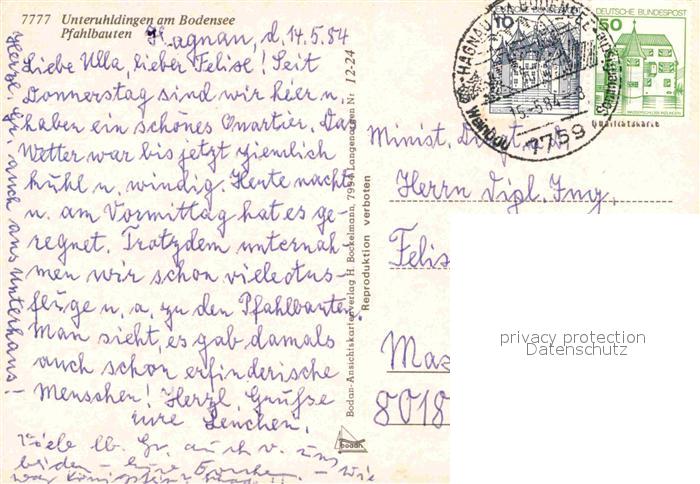 7777 Unteruhldingen am Bodensee
Pfahlbauten
Hagnau, d. 14.5.84
Liebe Ulla, lieber Felise! Seit
Donnerstag sind wir hier u.
haben ein schönes Quartier. Das
Wetter war bis jetzt ziemlich
kühl u. windig. Heute nacht
u. am Vormittag hat es ge-
regnet. Trotzdem unternah-
men wir schon viele Aus-
flüge u. a. zu den Pfahlbauten.
Man sieht, es gab damals
auch schon erfinderische
Menschen! Herzl. Grüße
eure Lenchen.
Viele lb. Gr. auch v. uns
beiden
wie
Herzl. Gr. auch ans Unterhaus!
Bodan-Ansichtskartenverlag H. Bockelmann, 7994 Langenargen Nr. 12-24
Reproduktion verboten
bodan
HAGNAU AM BODENSEE
7759
10
50
DEUTSCHE BUNDESPOST
Minist.
Herrn Dipl. Ing.
Felis
Mas
8018
privacy protection
Datenschutz